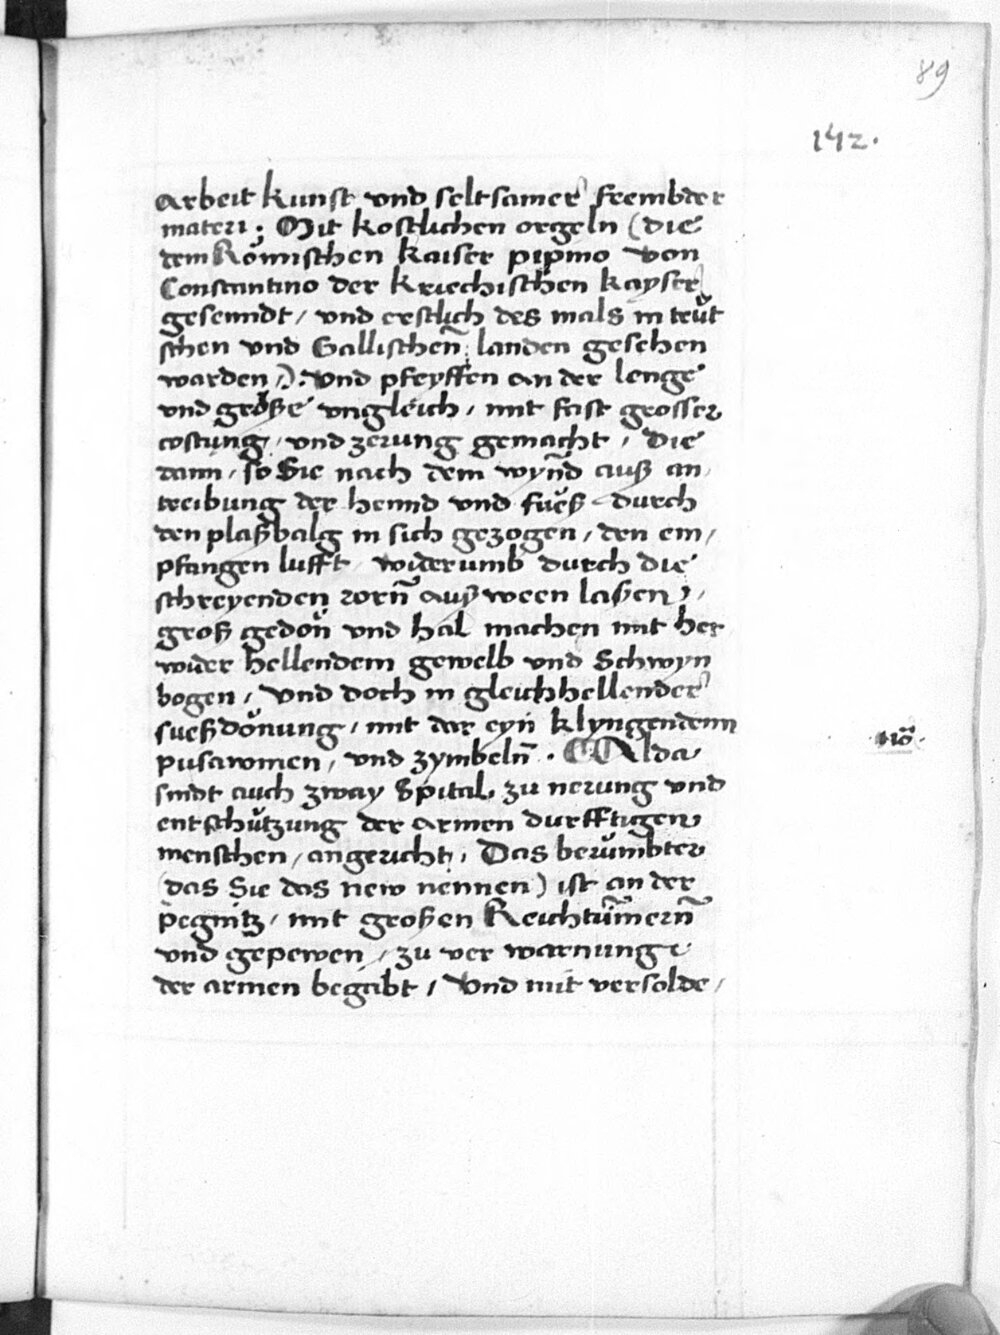 89
142.
arbeit kunst vnd seltsamer frembder
materi ; Mit kostlichen orgeln (die
dem Römischen kaiser pipino von
Constantino der kriechischen kayser
gesenndt / vnd erstlich des mals in teüt
schen vnd Gallischen landen gesehen
warden /) : vnd pfeyffen an der lenge
vnd größe vngleich / mit fast grosser
costung / vnd zerung gemacht / die
dann / so Sie nach dem wynd auß an
treibung der hennd vnd füeß durch
den plaßbalg in sich gezogen / den em /
pfangen lufft / widerumb durch die
schreyenden rorn auß ween laßen /
groß gedön vnd hal machen mit her
wider hellendem gewelb vnd Schwyn
bogen / vnd doch in gleichhellender
sueßdönung / mit dar eyn klyngendenn
pusawmen / vnd zymbeln̄ . Alda
nō .
sindt auch zway Spital / zu nerung vnd
entschützung der armen durfftigen
menschen / angericht / Das berümbter
(das Sie das new nennen) ist an der
pegnitz / mit großen Reichtümern̄
vnd gepewen / zu ver warnung
der armen begabt / Vnd mit versolde /